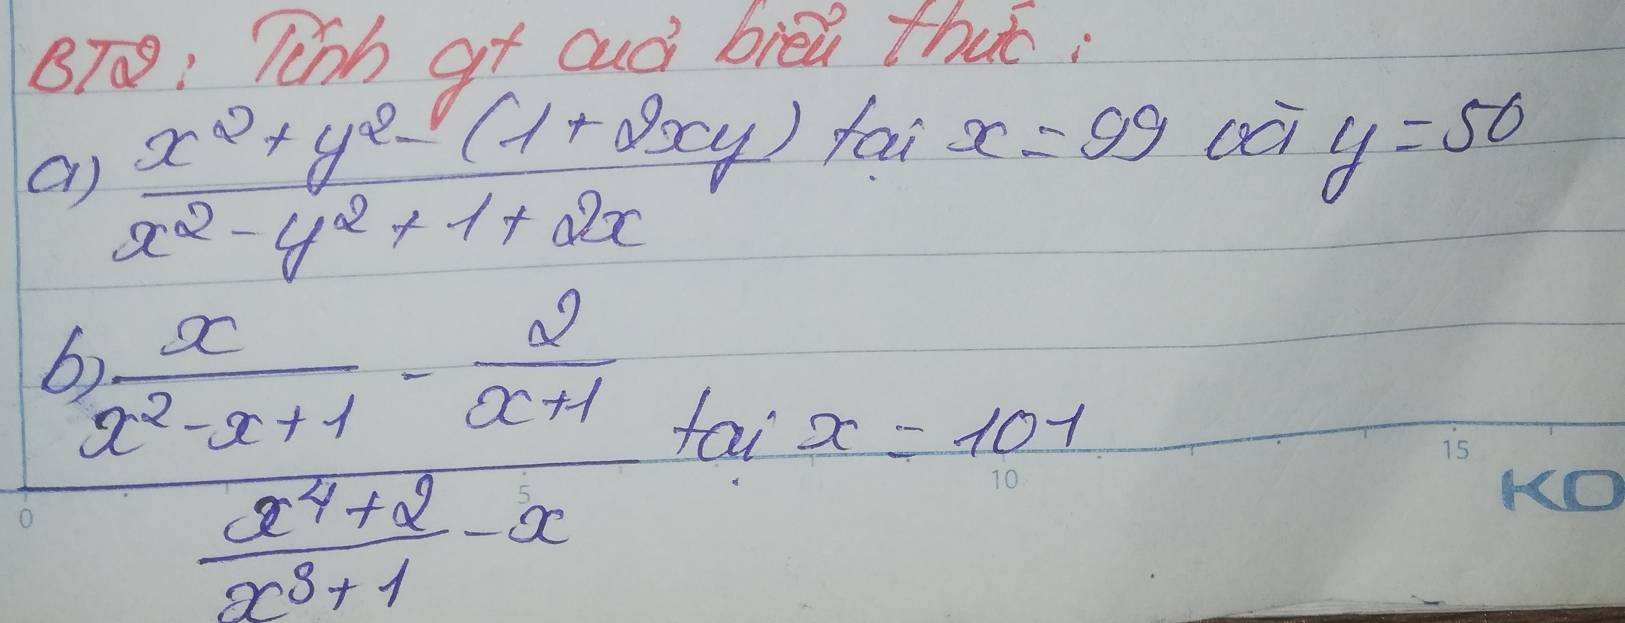 BT2: Tính gt cuả biểu thức:
a) \frac{x^2+y^2-(1+2xy)}{x^2-y^2+1+2x} tại x = 99 và y = 50
b) \frac{\frac{x}{x^2-x+1} - \frac{2}{x+1}}{\frac{x^4+2}{x^3+1} - x} tại x = 101
0 5 10 15
KO